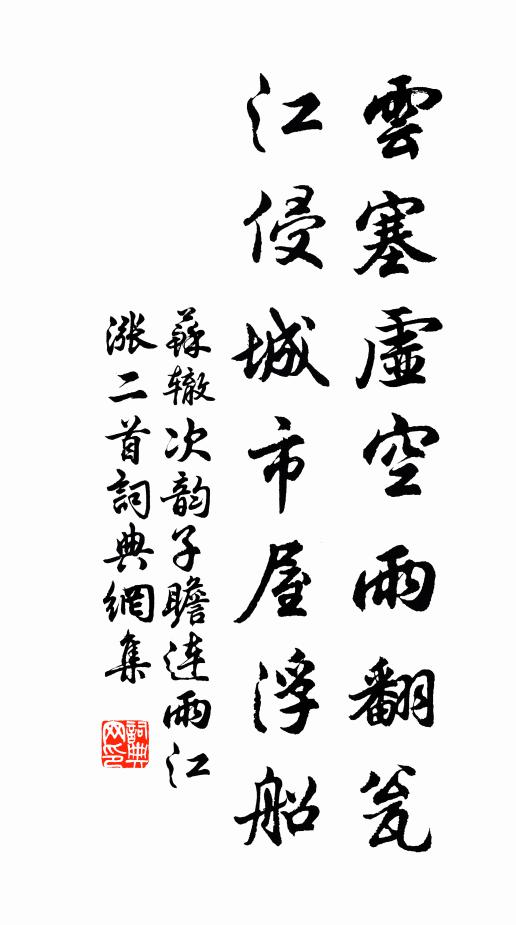 雲塞虛空雨翻瓮
江侵城市屋浮船
蘇辙次韵子瞻连雨江
漲二首詞典網集
詞典
网印